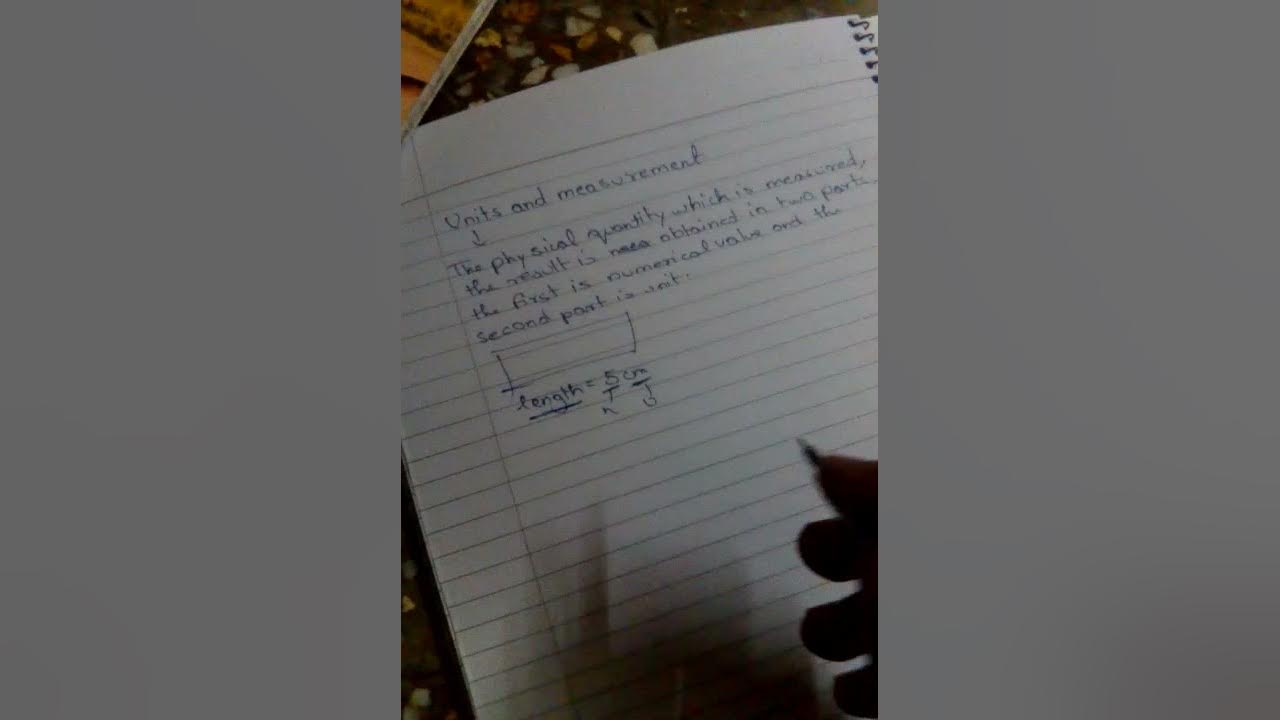 Units and measurement
↓
The physical quantity which is measured,
the result is obtained in two parts,
the first is numerical value and the
second part is unit.
length = 5 cm
n U